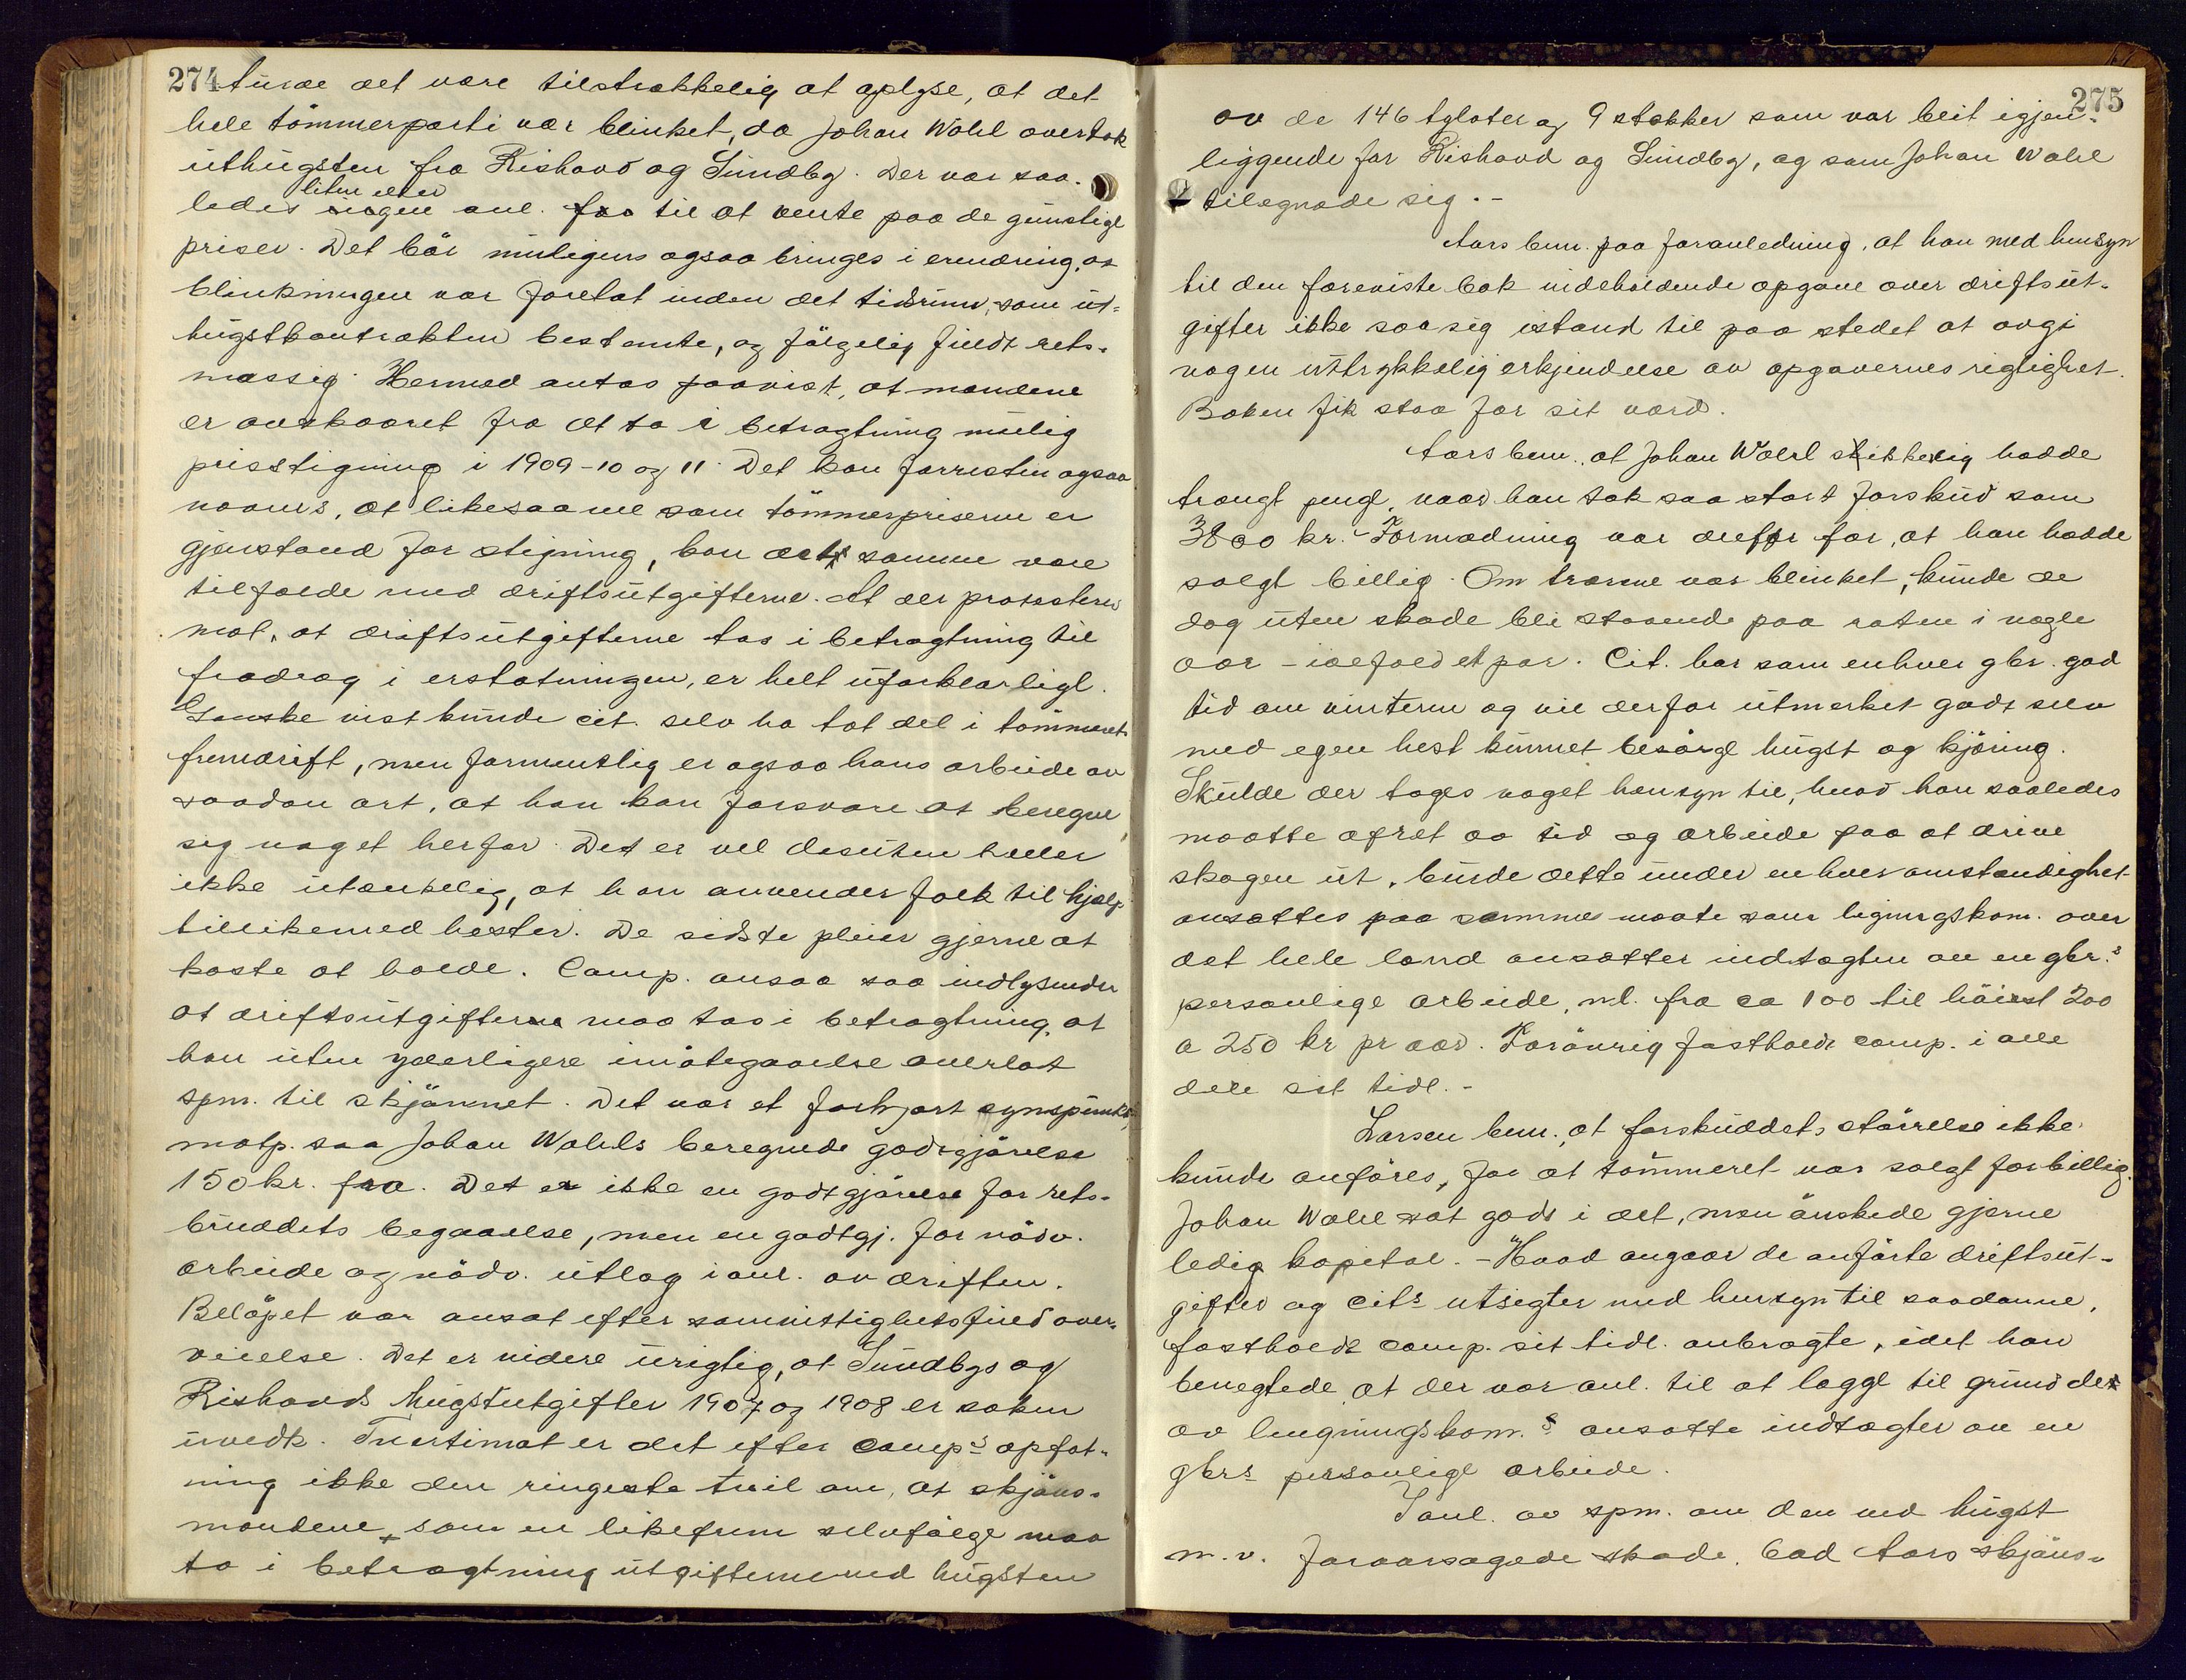 274 turde det være tilstrækkelig at oplyse, at det
hele tömmerparti var blinket, da Johan Wohl overtok
uthugsten fra Rishavd og Sundby. Der var saa-
liten eller
ledes ingen anl. til at vente paa de gunstige
priser. Det bör muligens ogsaa bringes i erindring, at
blinkningen var foretat inden det tidsrum, som ut-
hugstkontrakten bestemte, og fölgelig fuldt rets-
mæssig. Hermed antas paavist, at mændene
er avskaaret fra at ta i betragtning mulig
prisstigning i 1909-10 og 11. Det kan forresten ogsaa
nævnes, at likesaavel som tömmerpriserne er
gjenstand for stigning, kan det samme være
tilfælde med driftsutgifterne. At der protesteres
mot, at driftsutgifterne tas i betragtning til
fradrag i erstatningen, er helt uforklarligt.
Ganske vist kunde cit. selv ha tat del i tömmerets
fremdrift, men formentlig er ogsaa hans arbeide av
saadan art, at han kan forsvare at beregne
sig noget herfor. Det er vel desuten heller
ikke utænkelig, at han anvender folk til hjælp
tillikemed hester. De sidste pleier gjerne at
koste at holde. Comp. ansaa saa indlysende
at driftsutgifterne maa tas i betragtning, at
han uten yderligere imötegaaelse overlot
spm. til skjönnet. Det var et forkjært synspunkt,
motp. saa Johan Wohls beregnede godtgjörelse
150 kr. fra. Det er ikke en godtgjörelse for rets-
bruddets begaaelse, men en godtgj. for nödv.
arbeide og nödv. utlæg i anl. av driften.
Belöpet var ansat efter samvittighetsfuld over-
veielse. Det er videre urigtig, at Sundbys og
Rishavds hugstutgifter 1907 og 1908 er saken
uvedk. Tvertimot er det efter comps opfat-
ning ikke den ringeste tvil om, at skjöns-
mændene, som en likefrem selvfölge maa
ta i betragtning utgifterne ved hugsten
275
av de 146 tylvter og 9 stokker som var blit igjen-
liggende for Rishavd og Sundby, og som Johan Wohl
tilegnede sig.-
Aars bem. paa foranledning, at han med hensyn
til den foreviste bok indeholdende opgave over driftsut-
gifter ikke saa sig istand til paa stedet at avgi
nogen uttrykkelig erkjendelse av opgavernes rigtighet.
Boken fik staa for sit værd.
Aars bem., at Johan Wohl hadde
trængt penge, naar han tok saa stort forskud som
3800 kr. Formodning var derfor for, at han hadde
solgt billig. Om trærne var blinket, kunde de
dog uten skade bli staaende paa roten i nogle
aar - ialfald et par. Cit. har som enhver gbr. god
tid om vinteren og vil derfor utmerket godt selv
med egen hest kunnet besörge hugst og kjöring.
Skulde der tages noget hensyn til, hvad han saaledes
maatte ofret av tid og arbeide paa at drive
skogen ut, burde dette under enhver omstændighet
ansættes paa samme maate som ligningskom. over
det hele land ansætter indtægten av en gbr.s
personlige arbeide, nl. fra ca 100 til höiest 200
a 250 kr pr aar. Forövrig fastholdt comp. i alle
dele sit tidl.-
Larsen bem., at forskuddets störrelse ikke
kunde anföres, for at tömmeret var solgt for billig.
Johan Wohl sat godt i det, men önskede gjerne
ledig kapital. - Hvad angaar de anförte driftsut-
gifter og cits utsigter med hensyn til saadanne,
fastholdt comp. sit tidl. anbragte, idet han
benegtede at der var anl. til at lægge til grund det
av ligningskom.s ansatte indtægter av en
gbrs personlige arbeide.
I anl. av spm. om den ved hugst
m.v. foraarsagede skade, bad Aars skjöns-